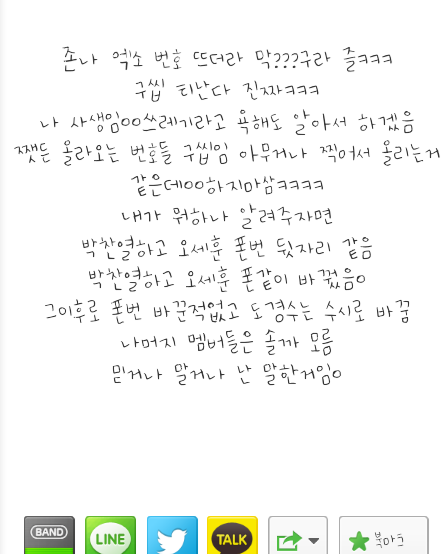 존나 엑소 번호 뜨더라 막???구라 즐ㅋㅋㅋ
구씹 티난다 진짜ㅋㅋㅋ
나 사생임ㅇㅇ쓰레기라고 욕해도 알아서 하겠음
쨌든 올라오는 번호들 구씹임 아무거나 찍어서 올리는거
같은데ㅇㅇ하지마삼ㅋㅋㅋㅋ
내가 뭐하나 알려주자면
박찬열하고 오세훈 폰번 뒷자리 같음
박찬열하고 오세훈 폰같이 바꿨음ㅇ
그이후로 폰번 바꾼적없고 도경수는 수시로 바꿈
나머지 멤버들은 솔까 모름
믿거나 말거나 난 말한거임ㅇ
BAND
LINE
TALK
북마크